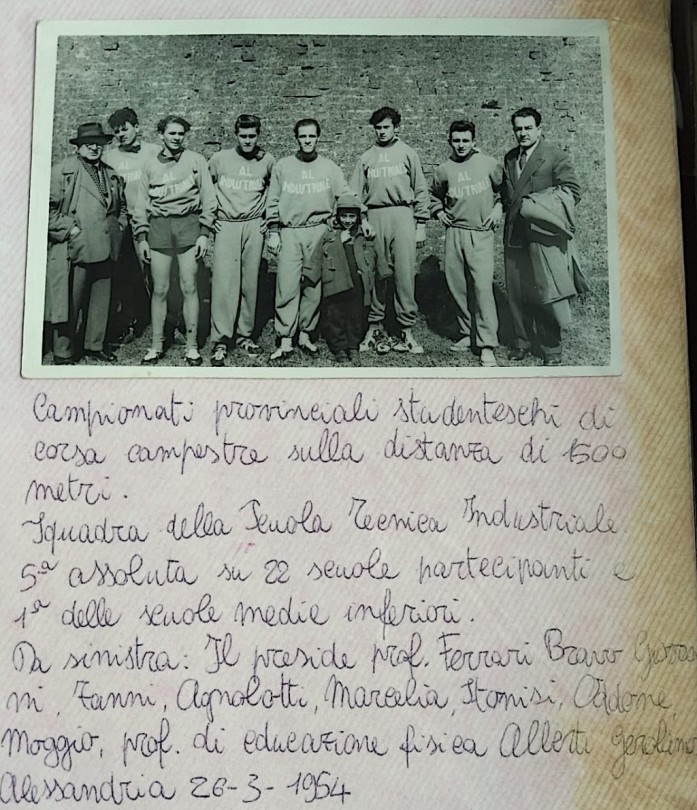 AL
AL
INDUSTRIALE
AL
INDUSTRIALE
AL
INDUSTRIALE
AL
INDUSTRIALE
Campionati provinciali studenteschi di
corsa campestre sulla distanza di 1500
metri.
Squadra della Scuola Tecnica Industriale
5ª assoluta su 22 scuole partecipanti e
1ª delle scuole medie inferiori.
Da sinistra: Il preside prof. Ferrari Bravo
ni, Zanni, Agnolotti, Marcalia, Oddone,
Moggio, prof. di educazione fisica Alberti
Alessandria 26-3-1954